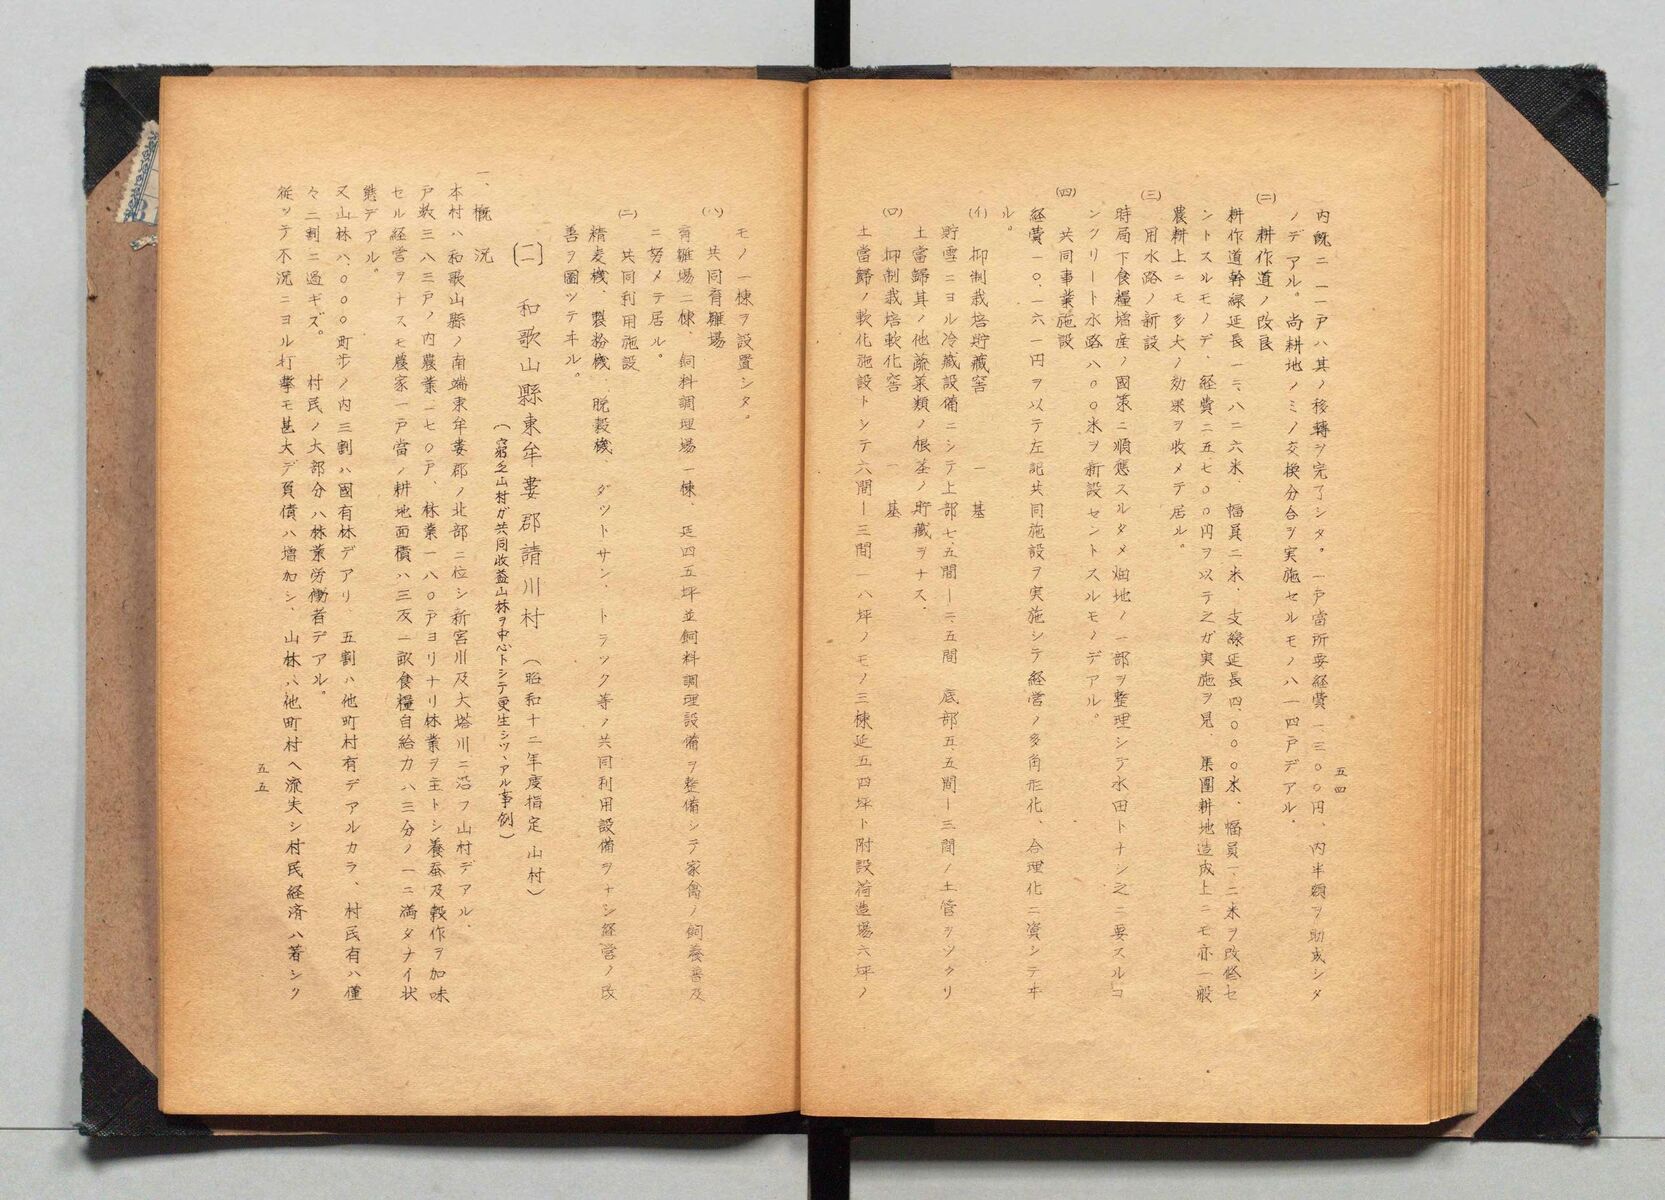 五四
内既ニ一一戸ハ其ノ移轉ヲ完了シタ。一戸當所要経費一、三〇〇円、内半額ヲ助成シタ
ノデアル。尚耕地ノミノ交換分合ヲ実施セルモノハ一四戸デアル。
(二) 耕作道ノ改良
耕作道幹線延長一三、八二六米、幅員二米、支線延長四、〇〇〇米、幅員一、二米ヲ改修セ
ントスルモノデ、経費二五、七〇〇円ヲ以テ之ガ実施ヲ見、集團耕地造成上ニモ亦一般
農耕上ニモ多大ノ効果ヲ收メテ居ル。
(三) 用水路ノ新設
時局下食糧増産ノ國策ニ順應スルタメ畑地ノ一部ヲ整理シテ水田トナシ之ニ要スルコ
ンクリート水路八〇〇米ヲ新設セントスルモノデアル。
(四) 共同事業施設
経費一〇、一六一円ヲ以テ左記共同施設ヲ実施シテ経営ノ多角形化、合理化ニ資シテヰ
ル。
(イ) 抑制栽培貯藏窖 一基
貯雪ニヨル冷藏設備ニシテ上部七、五間―二、五間 底部五、五間―三間ノ土管ヲツクリ
土當歸其ノ他蔬菜類ノ根茎ノ貯藏ヲナス、
(ロ) 抑制栽培軟化窖 一基
土當歸ノ軟化施設トシテ六間―三間一八坪ノモノ三棟延五四坪ト附設荷造場六坪ノ
モノ一棟ヲ設置シタ。
(ハ) 共同育雛場
育雛場二棟、飼料調理場一棟、延四五坪並飼料調理設備ヲ整備シテ家禽ノ飼養普及
ニ努メテ居ル。
(ニ) 共同利用施設
精麦機、製粉機、脱穀機、ダットサン、トラック等ノ共同利用設備ヲナシ経営ノ改
善ヲ圖ツテヰル。
〔二〕 和歌山縣東牟婁郡請川村 (昭和十二年度指定 山村)
(窮乏山村ガ共同收益山林ヲ中心トシテ更生シツヽアル事例)
一、概況
本村ハ和歌山縣ノ南端東牟婁郡ノ北部ニ位シ新宮川及大塔川ニ沿フ山村デアル、
戸数三八三戸ノ内農業一七〇戸、林業一八〇戸ヨリナリ林業ヲ主トシ養蚕及穀作ヲ加味
セル経営ヲナスモ農家一戸當ノ耕地面積ハ三反一畝食糧自給力ハ三分ノ一ニ満タナイ状
態デアル。
又山林八、〇〇〇町歩ノ内三割ハ國有林デアリ、五割ハ他町村有デアルカラ、村民有ハ僅
々二割ニ過ギズ。村民ノ大部分ハ林業労働者デアル。
従ツテ不況ニヨル打撃モ甚大デ負債ハ増加シ、山林ハ他町村ヘ流失シ村民経済ハ著シク
五五